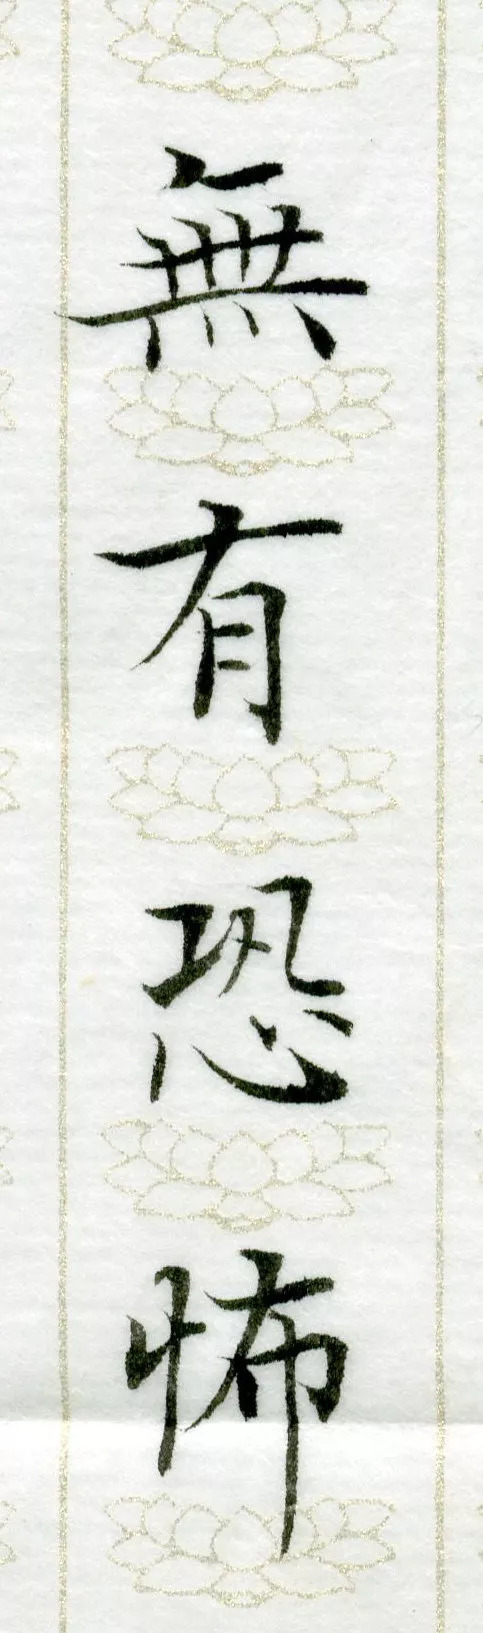 無有恐怖